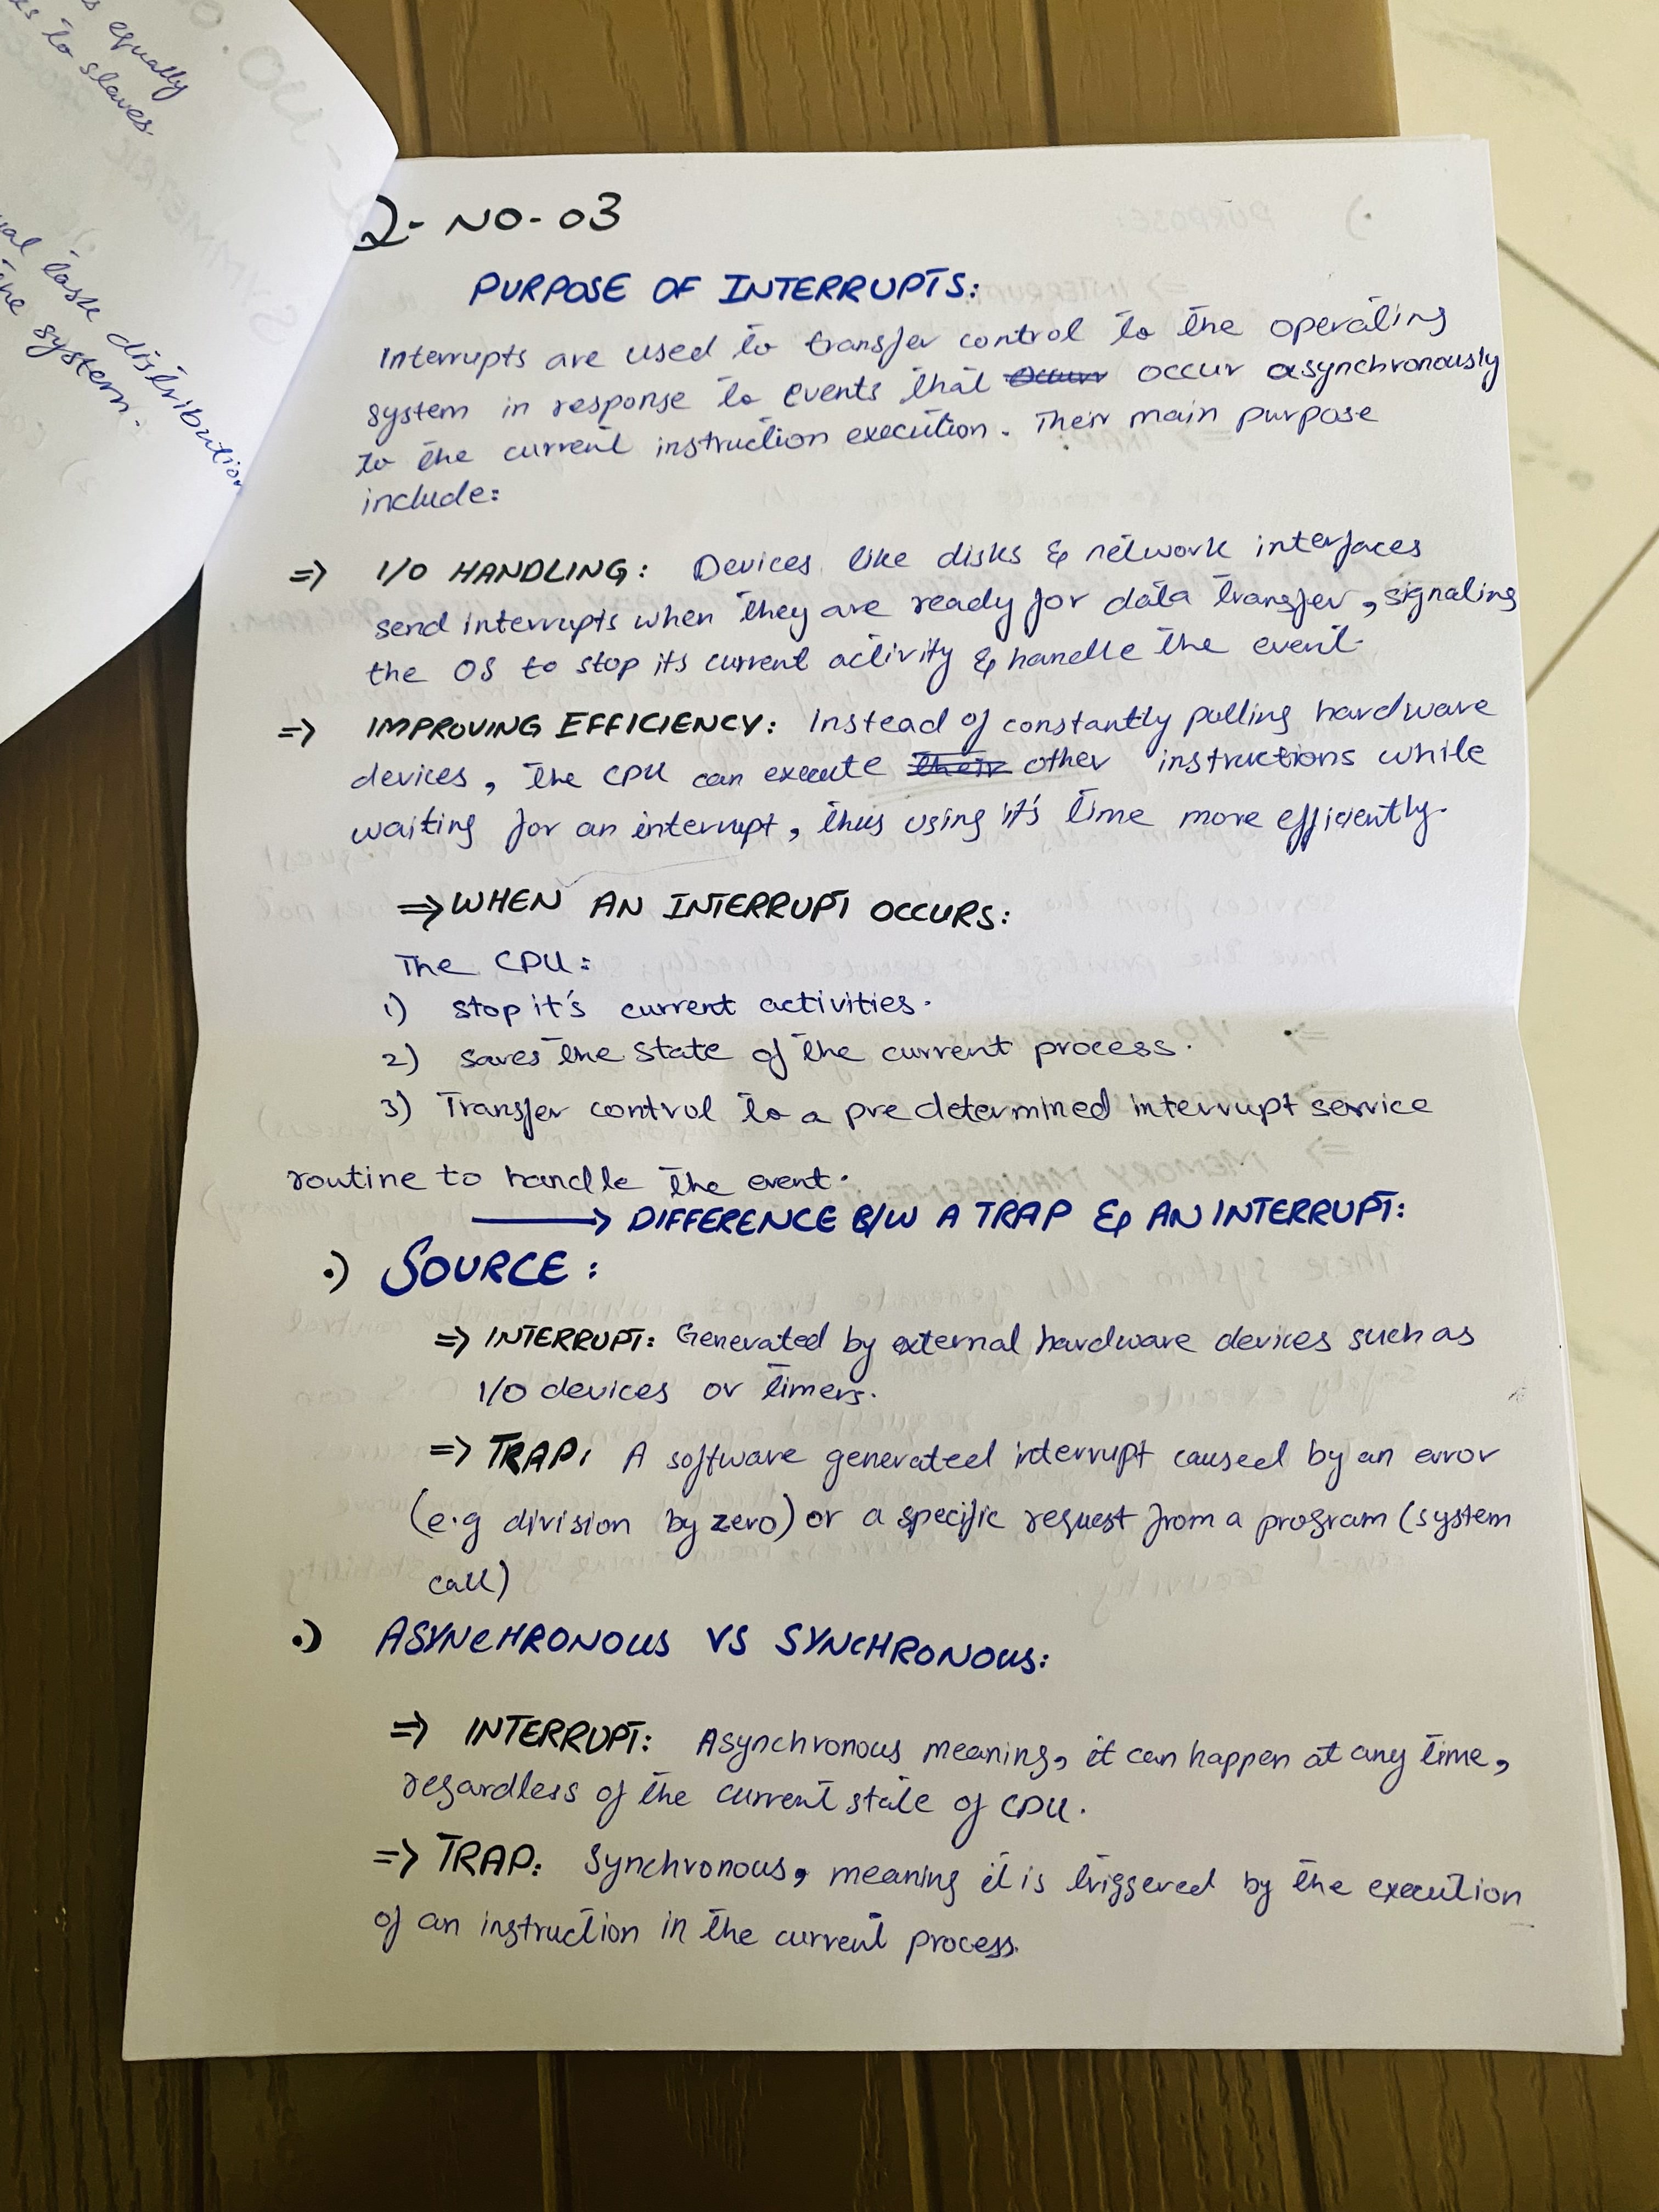 s equally
s to slaves
ual task distribution
the system.
Q-NO-03
PURPOSE OF INTERRUPTS:
Interrupts are used to transfer control to the operating
system in response to events that occur occur asynchronously
to the current instruction execution. Their main purpose
include:
=> I/O HANDLING: Devices like disks & network interfaces
send interrupts when they are ready for data transfer, signaling
the OS to stop its current activity & handle the event.
=> IMPROVING EFFICIENCY: Instead of constantly polling hardware
devices, the CPU can execute their other instructions while
waiting for an interrupt, thus using it's time more efficiently.
=> WHEN AN INTERRUPT OCCURS:
The CPU:
1) stop it's current activities.
2) saves the state of the current process.
3) Transfer control to a predetermined interrupt service
routine to handle the event.
→ DIFFERENCE B/W A TRAP & AN INTERRUPT:
•) SOURCE:
=> INTERRUPT: Generated by external hardware devices such as
I/O devices or timers.
=> TRAP: A software generated interrupt caused by an error
(e.g division by zero) or a specific request from a program (system
call)
•) ASYNCHRONOUS VS SYNCHRONOUS:
=> INTERRUPT: Asynchronous meaning, it can happen at any time,
regardless of the current state of CPU.
=> TRAP: Synchronous, meaning it is triggered by the execution
of an instruction in the current process.